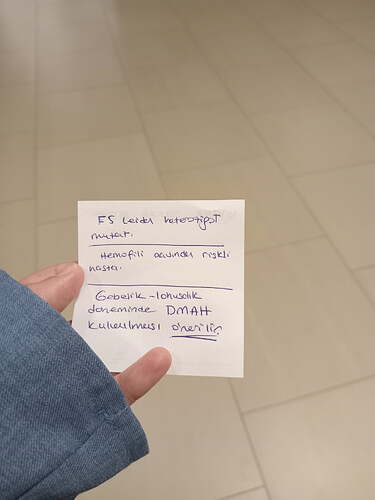 F5 Leiden heterozigot
mutant.
Hemofili açısından riskli
hasta.
Gebelik-lohusalık
döneminde DMAH
kullanılması önerilir